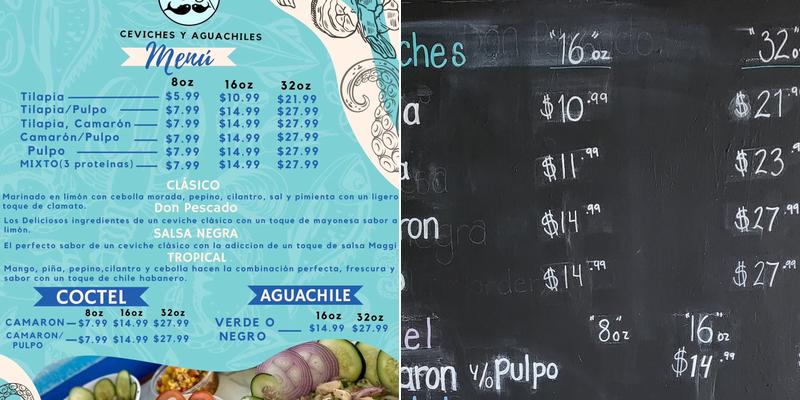 CEVICHES Y AGUACHILES
Menú
8oz 16oz 32oz
Tilapia $5.99 $10.99 $21.99
Tilapia/Pulpo $7.99 $14.99 $27.99
Tilapia, Camarón $7.99 $14.99 $27.99
Camarón/Pulpo $7.99 $14.99 $27.99
Pulpo $7.99 $14.99 $27.99
MIXTO(3 proteinas) $7.99 $14.99 $27.99
CLÁSICO
Marinado en limón con cebolla morada, pepino, cilantro, sal y pimienta con un ligero
toque de clamato.
Don Pescado
Los Deliciosos ingredientes de un ceviche clásico con un toque de mayonesa sabor a
limón.
SALSA NEGRA
El perfecto sabor de un ceviche clásico con la adiccion de un toque de salsa Maggi
TROPICAL
Mango, piña, pepino,cilantro y cebolla hacen la combinación perfecta, frescura y
sabor con un toque de chile habanero.
COCTEL
8oz 16oz 32oz
CAMARON $7.99 $14.99 $27.99
CAMARON/
PULPO $7.99 $14.99 $27.99
AGUACHILE
16oz 32oz
VERDE O
NEGRO $14.99 $27.99
ches "16"oz "32"o
a $10.99 $21.9
a $11.99 $23.99
ron $14.99 $27.99
$14.99 $27.99
el "8"oz "16"oz
aron y/o Pulpo $14.99